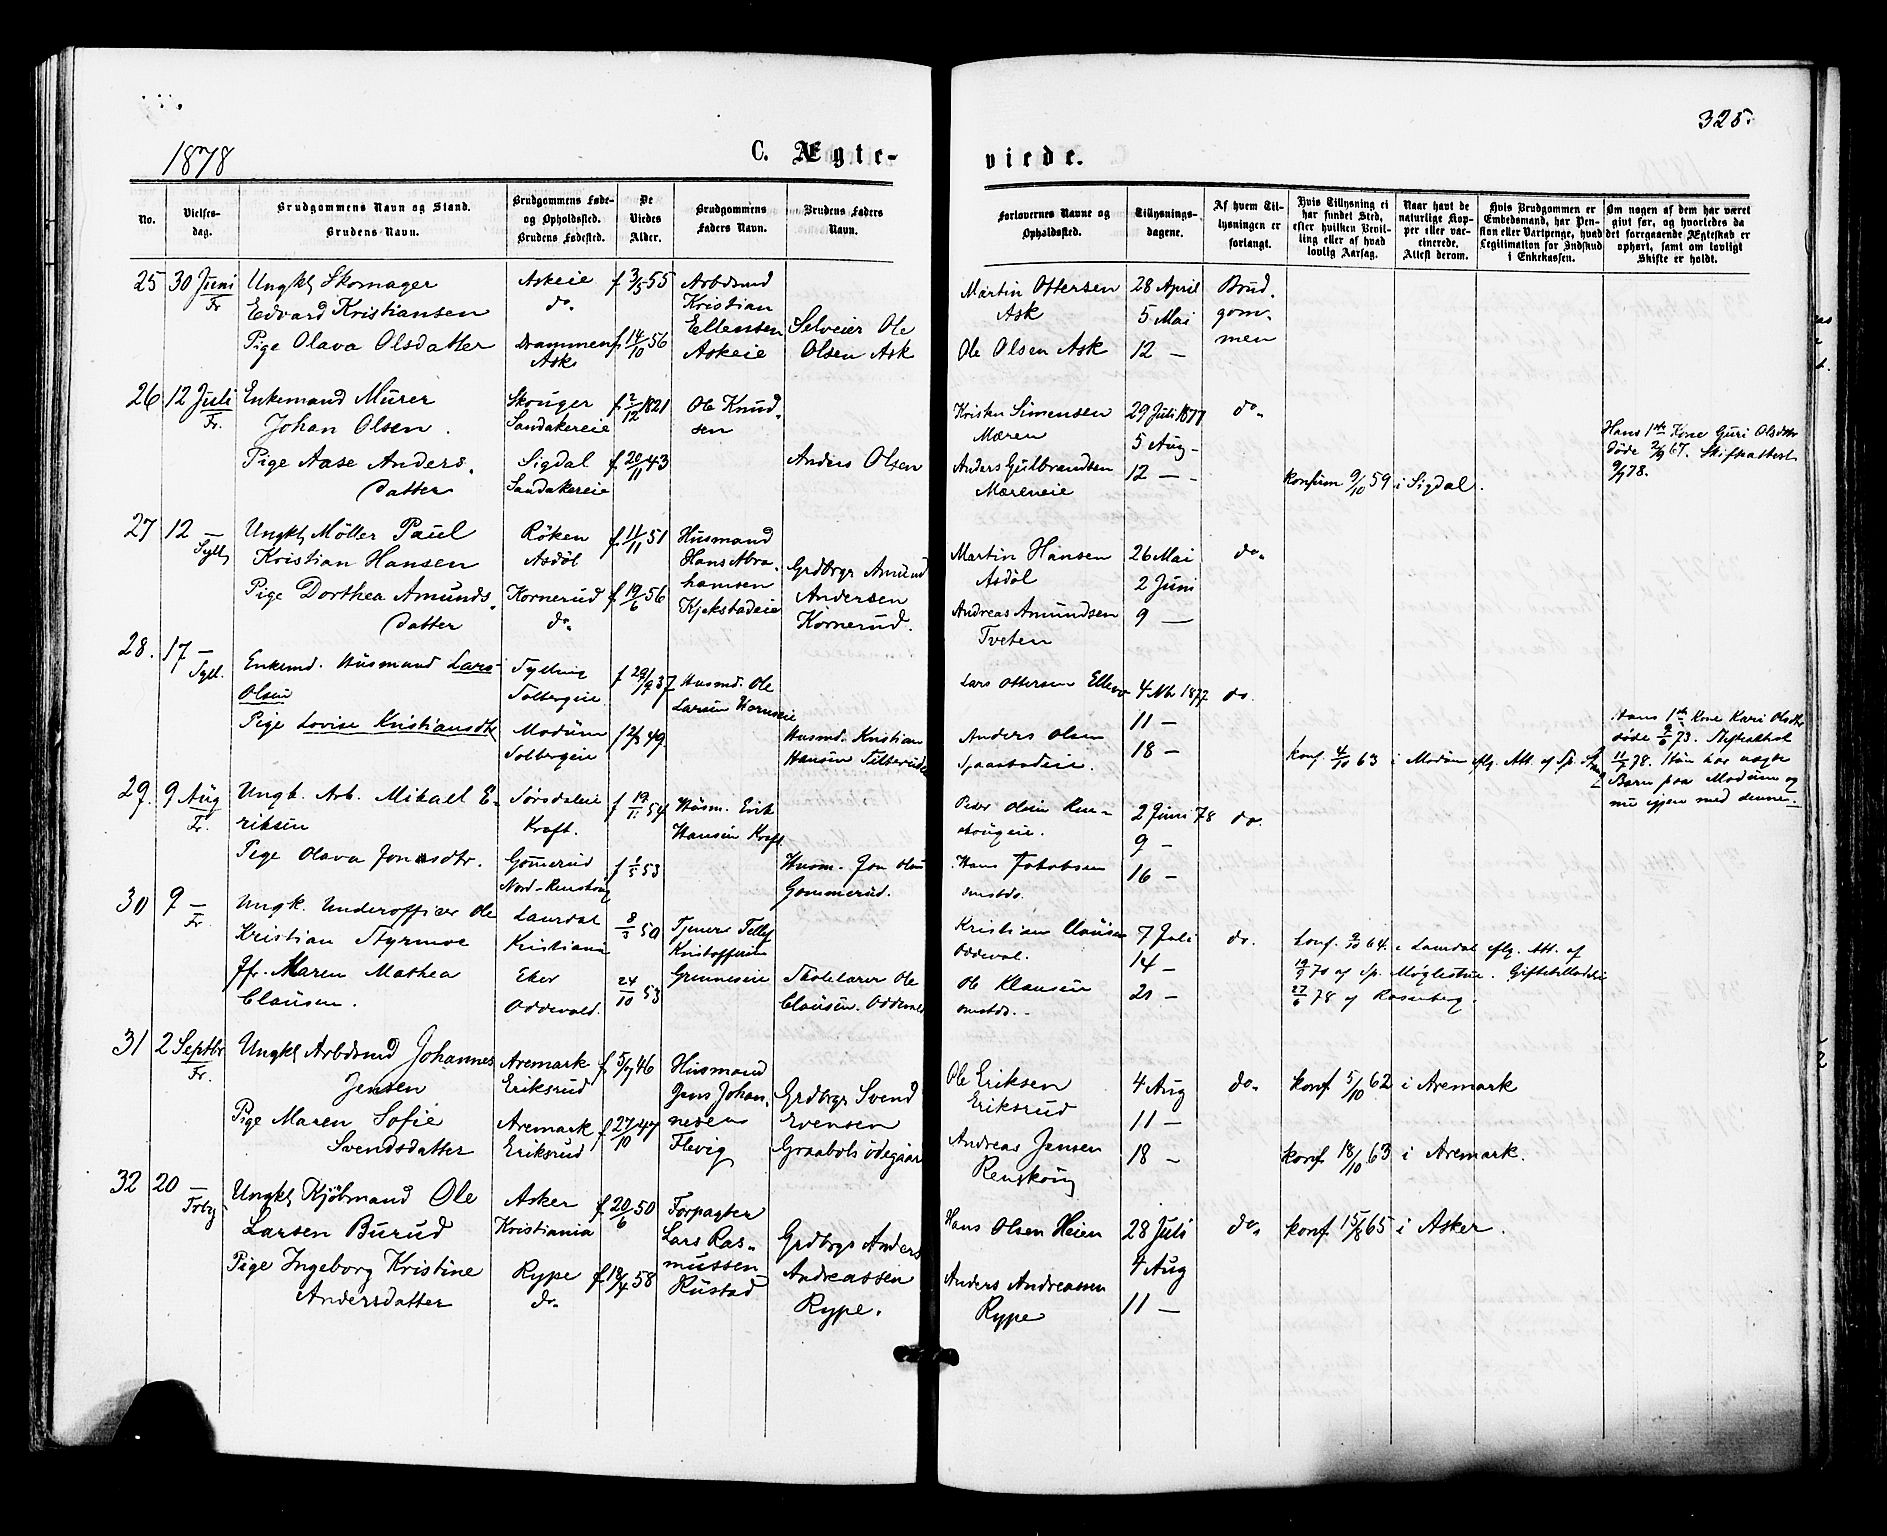 1878
C. Ægte-
viede.
325.
No.
Vielses-
dag.
Brudgommens Navn og Stand.
Brudens Navn.
Brudgommens Føde-
og Opholdssted.
Brudens Fødested.
De
Viedes
Alder.
Brudgommens
Faders Navn.
Brudens Faders
Navn.
Forlovernes Navne og
Opholdssted.
Tillysnings-
dagene.
Af hvem Til-
lysningen er
forlangt.
Hvis Tillysning ei
har fundet Sted,
efter hvilken Bevil-
ling eller af hvad
lovlig Aarsag.
Naar havt de
naturlige Kop-
per eller vac-
cinerede.
Attest derom.
Hvis Brudgommen er
Embedsmand, har Pen-
sion eller Vartpenge, hvad
Legitimation for Indskud
i Enkekassen.
Om nogen af dem har været
gift før, og hvorledes da
det foregaaende Ægteskab er
ophørt, samt om lovligt
Skifte er holdt.
25 30 Juni
Fr
Ungkl Skomager
Edvard Kristiansen
Pige Olava Olsdatter
Askeie
do.
Drammen
Ask
f 3/5 55
f 14/10 56
Arbdsmd
Kristian
Ellensen
Askeie
Selveier Ole
Olsen Ask
Martin Ottersen
Ask
Ole Olsen Ask
28 April
5 Mai
12 —
Brud-
gom-
men
26 12 Juli
Fr.
Enkemand Murer
Johan Olsen.
Pige Aase Anders-
datter
Skouger
Sandakereie
Sigdal
Sandakereie
f 2/12 1821
f 20/11 43
Ole Knud-
sen
Anders Olsen
Kristen Simensen
Mæren
Anders Gulbrandsen
Mæreneie
29 Juli 1877
5 Aug -
12 — -
do.
konfirm 9/10 59 i Sigdal.
Hans 1ste Kone Guri Olsdtr
døde 2/9 67. Skifteattest
9/7 78.
27 12 —
Syll
Ungkl Møller Paul
Kristian Hansen
Pige Dorthea Amunds-
datter
Röken
Asdöl
Kornerud
do.
f 11/11 51
f 19/6 56
Husmand
Hans Abra-
hamsen
Kjekstadeie
Grdbrgr Amund
Andersen
Kornerud.
Martin Hansen
Asdöl
Andreas Amundsen
Tveten
26 Mai
2 Juni
9 —
do.
28. 17 —
Syll.
Enkemd. Husmand Lars
Olsen
Pige Lovise Kristiansdtr
Sylling
Solbergeie
Modum
Solbergeie
f 29/9 37
Husmd. Ole
Larsen
Husmd. Kristian
Hansen
Lars Ottersen
Anders Olsen
4 1877
11 —
18 —
do.
konf. 4/10 63 i Modum flg. Att. af Sp.
Hans 1ste Kone Kari Olsdtr
døde 73. Skifteattest
78. Hun har uægte
Barn paa Modum og
nu igjen med denne.
29. 9 Aug
Fr.
Ungk. Arb. Mikael E-
riksen
Pige Olava Jonasdtr.
Sørsdaleie
Kraft.
Gomerud
f 19/11 54
f 1/5 53
Husm. Erik
Hansen Kraft
Husm. Jon Olsen
Gommerud.
Peder Olsen Ren-
skougeie.
Hans Jakobsen
2 Juni 78
9 —
16 —
do.
30 9 —
Fr.
Ungk. Underofficer Ole
Kristian Styrmoe
Jfr. Maren Mathea
Clausen.
Laurdal
Kristiania
Eker
Oddevald.
8/3 50
24/10 53
Tjener
Kristoffersen
Skolelærer Ole
Clausen. Oddevald
Kristian Clausen
Oddeval.
Ole Klausen
7 Juli
14 —
21 —
do.
konf. 64. i Laurdal flg. Att. af
70 af Sp. Møglestue. Giftetilladelse
27/6 78 af Rosenberg.
31 2 Septbr
Fr.
Ungkl Arbdsmd Johannes
Jensen
Pige Maren Sofie
Svendsdatter
Aremark
Eriksrud
Aremark
Eriksrud
f 5/7 46
f 27/10 47
Husmand
Jens Johan-
nesen
Flevig
Grdbrgr Svend
Evensen
Graabøls ödegaar
Ole Eriksen
Eriksrud
Andreas Jensen
Renskoug
4 Aug
11 —
18 —
do.
konf. 5/10 62 i Aremark
konf. 18/10 63 i Aremark.
32 20 —
Ungkl Kjöbmand Ole
Larsen Burud
Pige Ingeborg Kristine
Andersdatter
Asker
Kristiania
Rype
do.
f 20/6 50
f 18/4 58
Forpagter
Lars Ras-
mussen
Rustad
Grdbrgr Anders
Andreassen
Rype.
Hans Olsen Heien
Anders Andreassen
Rype
28 Juli
4 Aug
11 —
do.
konf. 15/8 65 i Asker.